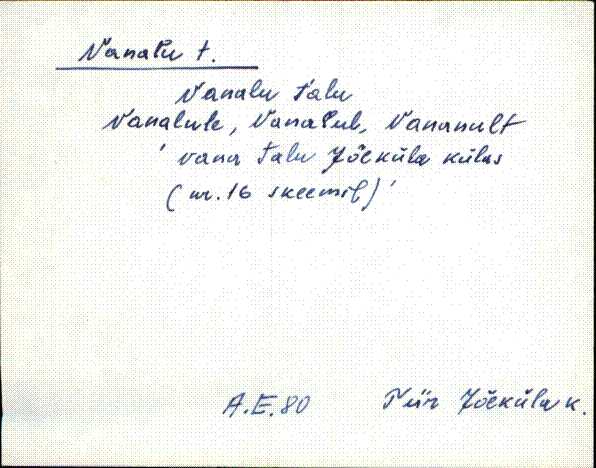 Vanalu t.
Vanalu talu
Vanalule, Vanalul, Vanalult
' vana talu Jõeküla külas
(nr. 16 skeemil) '
A.E. 80 Tür Jõeküla k.